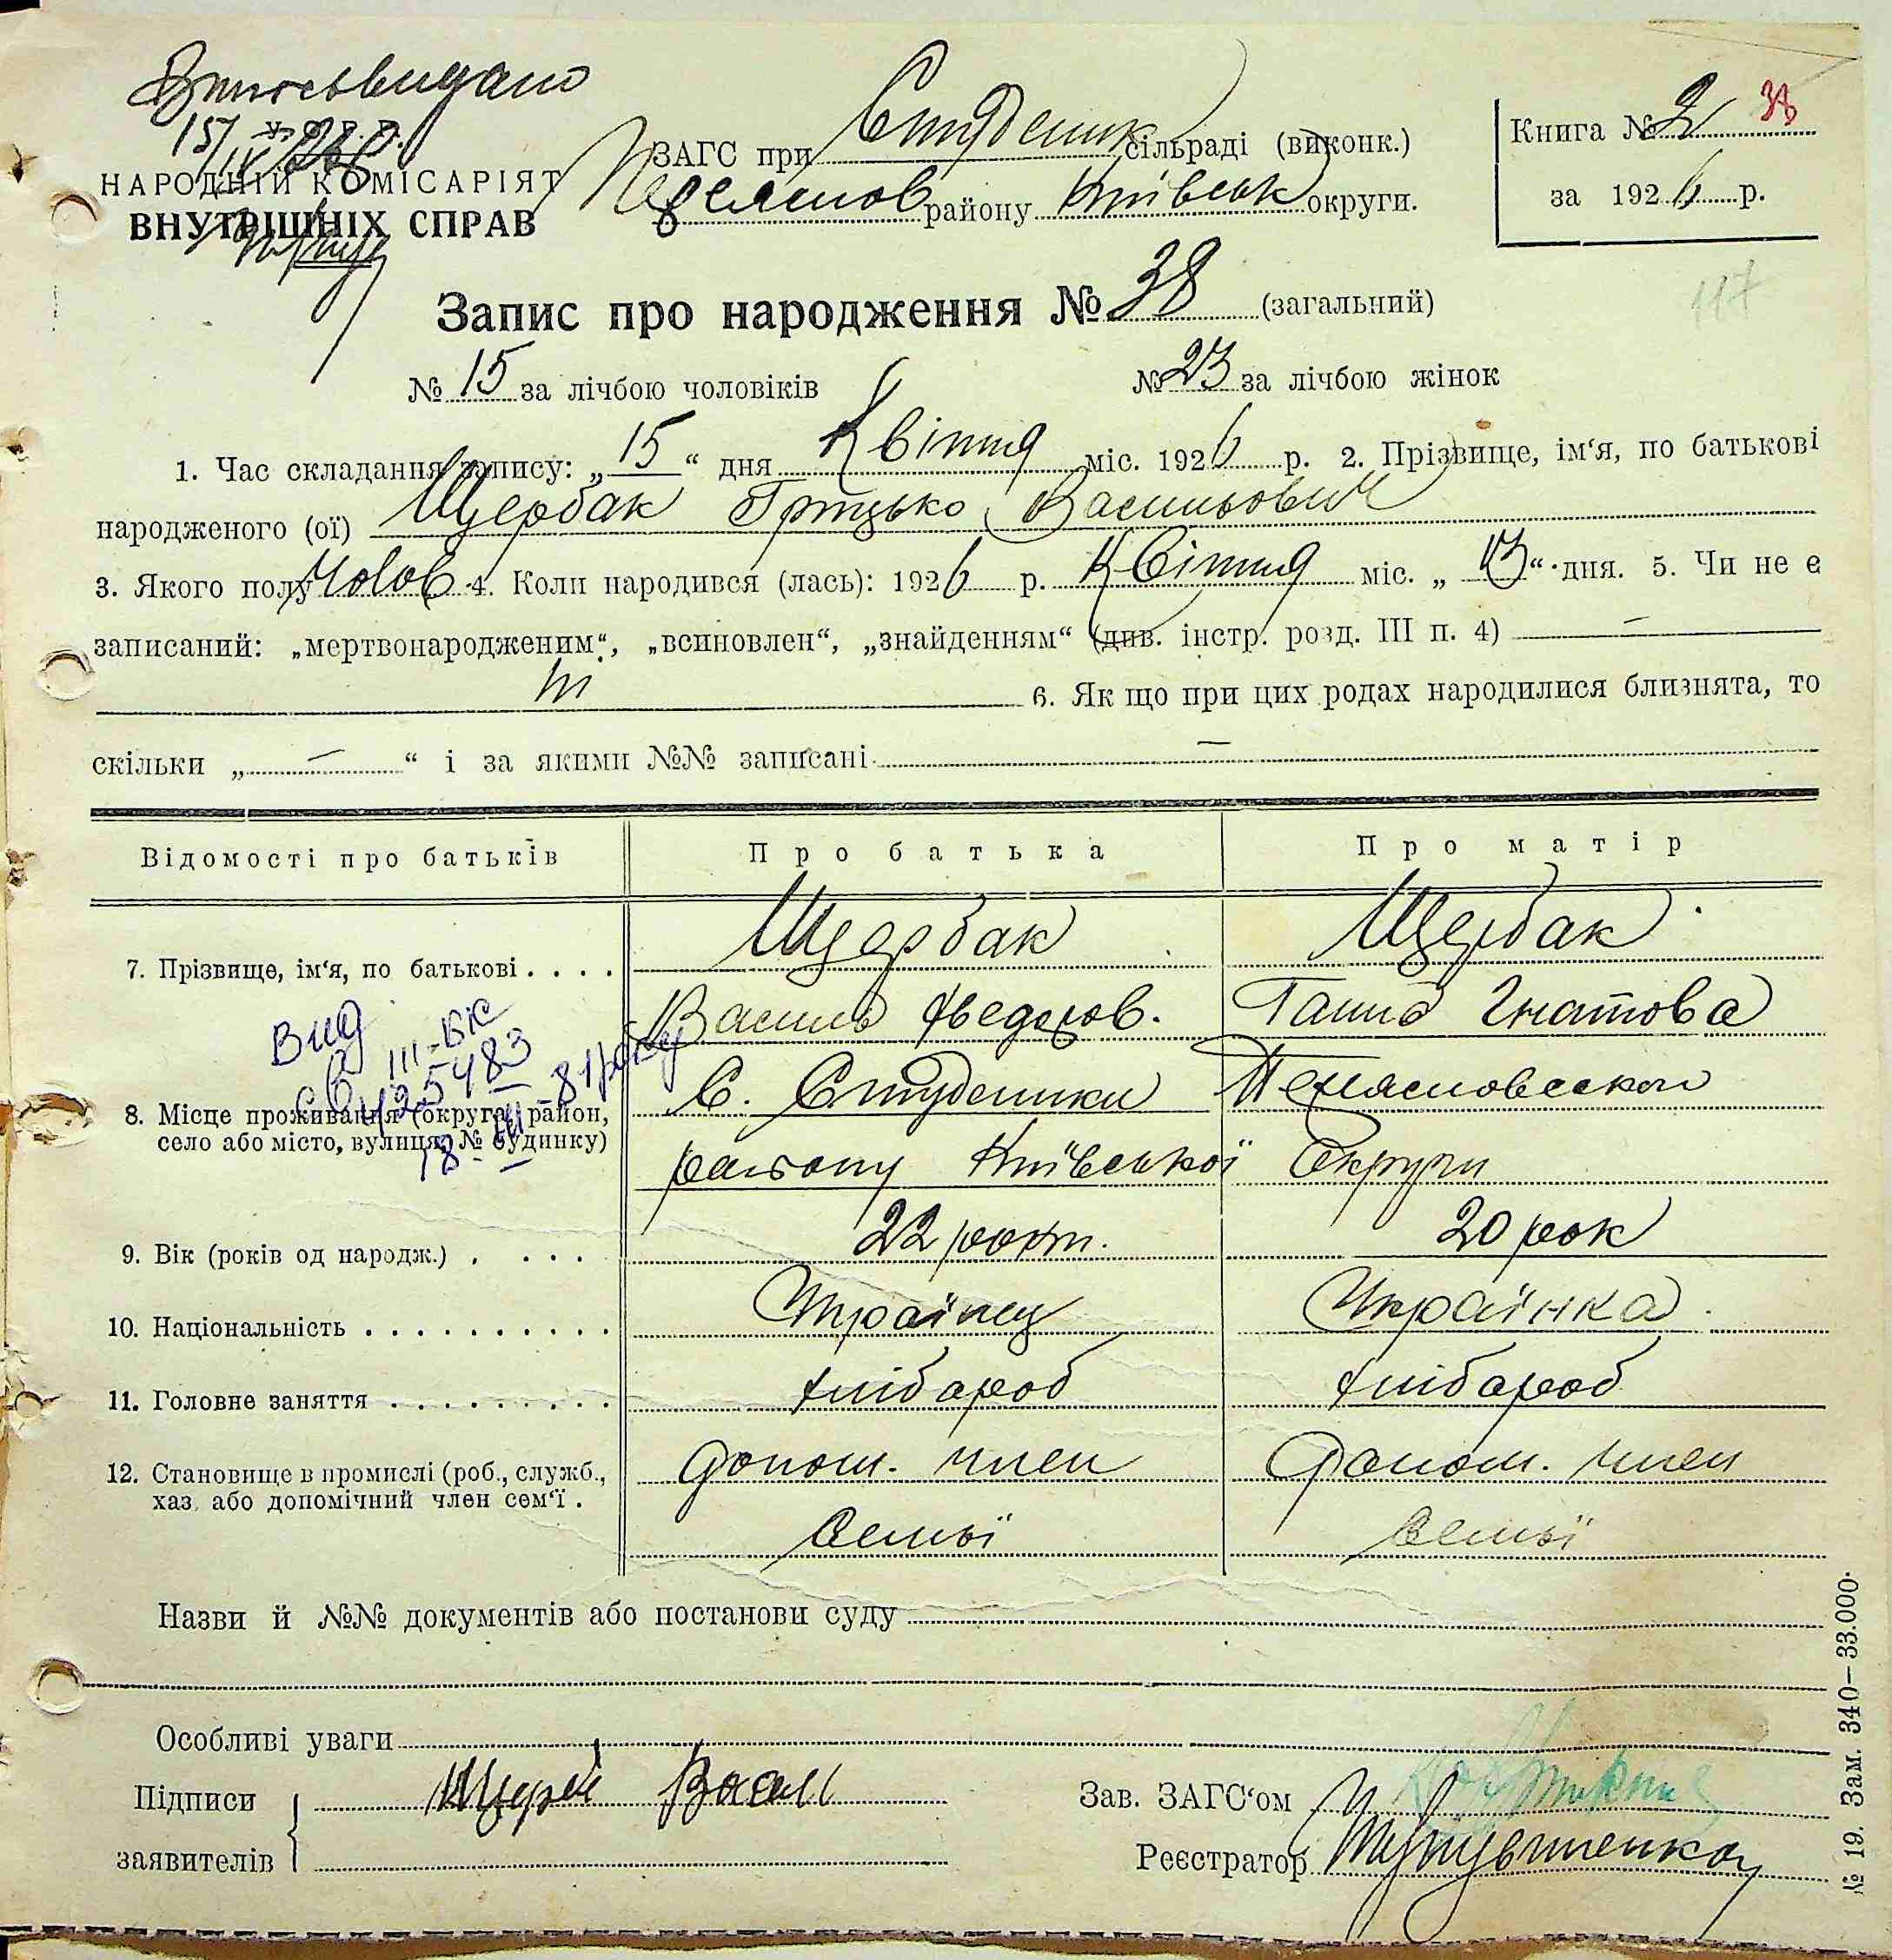 15/IX
У. С. Р. Р.
НАРОДНІЙ КОМІСАРІЯТ
ВНУТРІШНІХ СПРАВ
ЗАГС при Студеник сільраді (виконк.)
району Київськ округи.
Книга № 2 38
за 1926 р.
117
Запис про народження № 38 (загальний)
№ 15 за лічбою чоловіків № 23 за лічбою жінок
1. Час складання запису: „15“ дня Квітня міс. 1926 р. 2. Прізвище, ім‘я, по батькові
народженого (ої) Щербак Грицько Васильович
3. Якого полу Чолов 4. Коли народився (лась): 1926 р. Квітня міс. „13“ дня. 5. Чи не є
записаний: „мертвонародженим“, „всиновлен“, „знайденням“ (див. інстр. розд. III п. 4) —
ні 6. Як що при цих родах народилися близнята, то
скільки „ — “ і за якими №№ записані —
Відомості про батьків Про батька Про матір
7. Прізвище, ім‘я, по батькові . . . . Щербак Щербак
Василь Федоров. Ганна Гнатова
Вид
св III-БК
425483
18-III-81 року
8. Місце проживання (округа, район, С. Студеники
село або місто, вулиця, № будинку) району Київської Округи
9. Вік (років од народж.) . . . . 22 рокт. 20 рок
10. Національність . . . . . . . . . . . Українец Українка
11. Головне заняття . . . . . . . . . . хлібароб хлібароб
12. Становище в промислі (роб., служб., допом. член допом. член
хаз. або допомічний член сем‘ї . семьї семьї
Назви й №№ документів або постанови суду
Особливі уваги
Підписи Щерб Васил
заявителів
Зав. ЗАГС‘ом
Реєстратор
№ 19. Зам. 340—33.000.